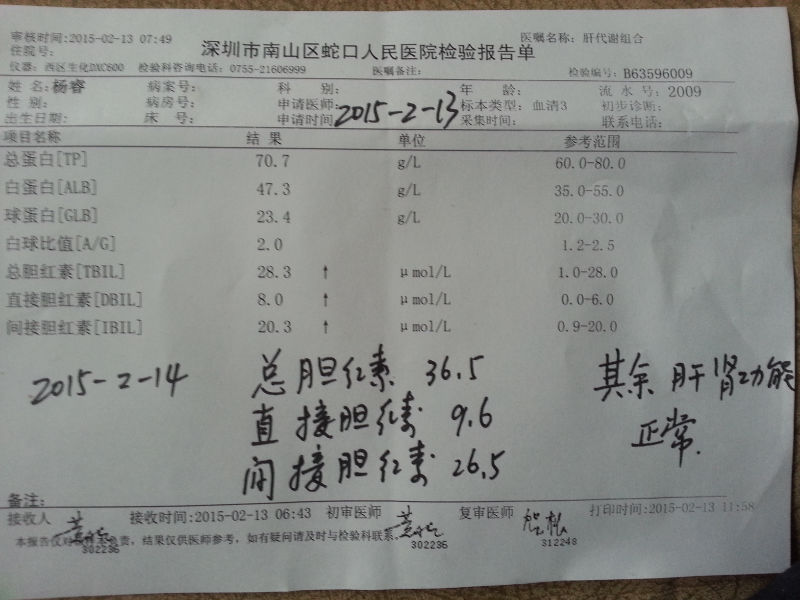 审核时间:2015-02-13 07:49 医嘱名称: 肝代谢组合
住院号: 深圳市南山区蛇口人民医院检验报告单
仪器: 西区生化DXC600 检验科咨询电话: 0755-21606999 医嘱备注: 检验编号: B63596009
姓 名: 杨睿 病案号: 科 别: 年 龄: 流 水 号: 2009
性 别: 病房号: 申请医师: 标本类型: 血清3 初步诊断:
出生日期: 床 号: 申请时间 2015-2-13 采集时间: 联系电话:
项目名称 结 果 单位 参考范围
总蛋白[TP] 70.7 g/L 60.0-80.0
白蛋白[ALB] 47.3 g/L 35.0-55.0
球蛋白[GLB] 23.4 g/L 20.0-30.0
白球比值[A/G] 2.0 1.2-2.5
总胆红素[TBIL] 28.3 ↑ μmol/L 1.0-28.0
直接胆红素[DBIL] 8.0 ↑ μmol/L 0.0-6.0
间接胆红素[IBIL] 20.3 ↑ μmol/L 0.9-20.0
2015-2-14 总胆红素 36.5 其余肝肾功能
直接胆红素 9.6 正常.
间接胆红素 26.5
备注:
接收人 接收时间:2015-02-13 06:43 初审医师 复审医师 打印时间:2015-02-13 11:58
302236 302236 312248
本报告仅对 负责, 结果仅供医师参考, 如有疑问请及时与检验科联系.